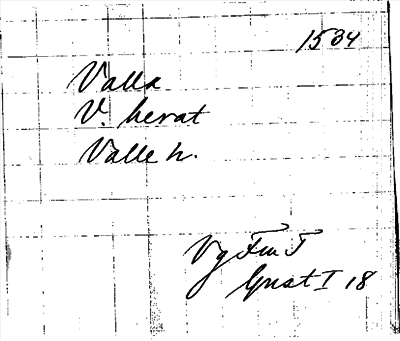 1534
Valla
V. herat
Valle h.
Vg Fm T
Gust I 18